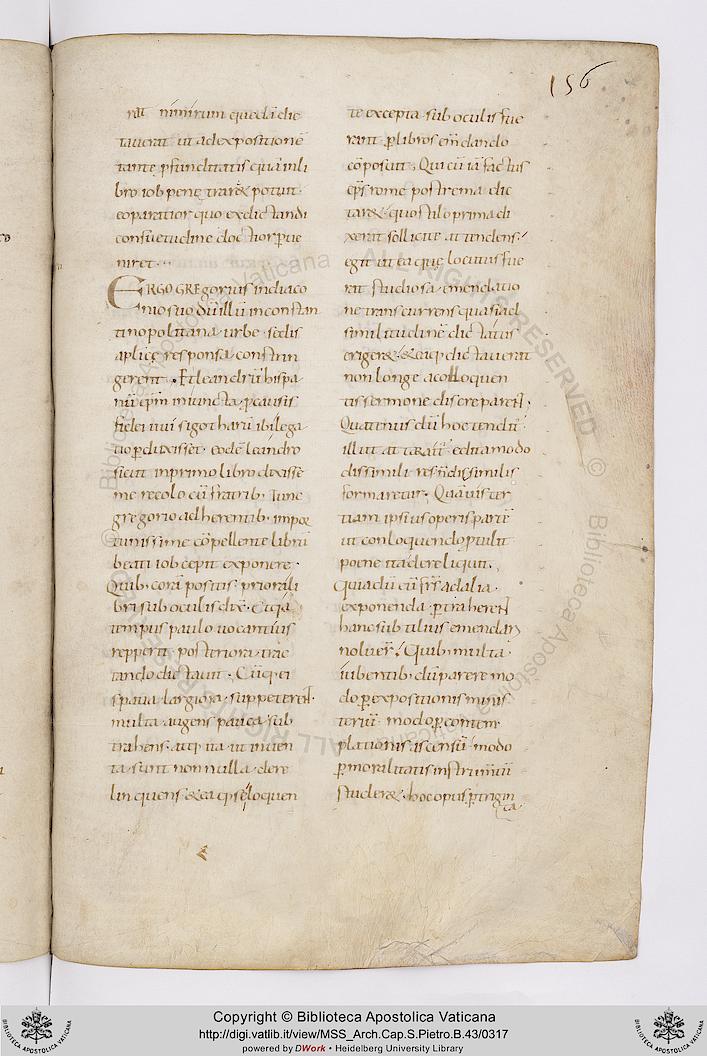 156
rat nimirum quedā dic
tauerat ut ad expositionē
tante ꝓfunditatis quā in li
bro iob pene trar& potuit·
eo paratior quo ex dictandi
consuetudine doctior ꝑue
niret···
ERGO GREgorius in diaco
nio suo dū illū in constan
tinopolitana urbe sedis
aplicę responsa constrin
gerent. Et leandrū hispa
nū ep̄m iniuncta ꝓ causis
fidei uuisigotharū ibi lega
tio ꝑduxisset· eodē leandro
sicut in primo libro dixisse
me recolo cū fratrib· tunc
gregorio ad herentib· impor
tunissime cōpellente librū
beati iob cępit exponere·
Quib· corā positis priora li
bri sub oculis dix̄· Cūq̄
tempus paulo uocantius
repperit· posteriora trac
tando dictauit· Cūq· ei
spatia largiora suppeterent·
multa augens pauca sub
trahens· atq· ita ut inuen
ta sunt non nulla dere
linquens· & ea q̨ se loquen
te excepta sub oculis fue
rant ꝑ libros em̄dando
cōposuit· Qui cū iā factus
ep̄s romę postrema dic
tar&· quo stilo prima di
xerat sollicite attendens·
egit ut ea quę locutus fue
rat studiosa emendatio
ne transcurrens quasi ad
similitudinē dictatus
erigere&· & ea q̨ dictauerat
non longe a colloquen
tis sermone discreparent·
Quatinus dū hoc tendit
illut attrait edita modo
dissimili res n̄ dissimilis
formaretur· Quāuis ter
tiam ipsius operis partē
ut conloquendo ꝓtulit
poene ita dereliquit·
Quia dū eū fr̄s ad alia·
exponenda ꝑtraherent
hanc subtilius emendari
noluer̄· Quib· multa·
iubentib· dū parere mo
do ꝑ expositionis minis
teriū· modo ꝑ contem
plationis ascensū· modo
ꝑ moralitatis instrumtū
studer&· hoc opus ꝑ trigin
ta
Copyright © Biblioteca Apostolica Vaticana
http://digi.vatlib.it/view/MSS_Arch.Cap.S.Pietro.B.43/0317
powered by DWork • Heidelberg University Library